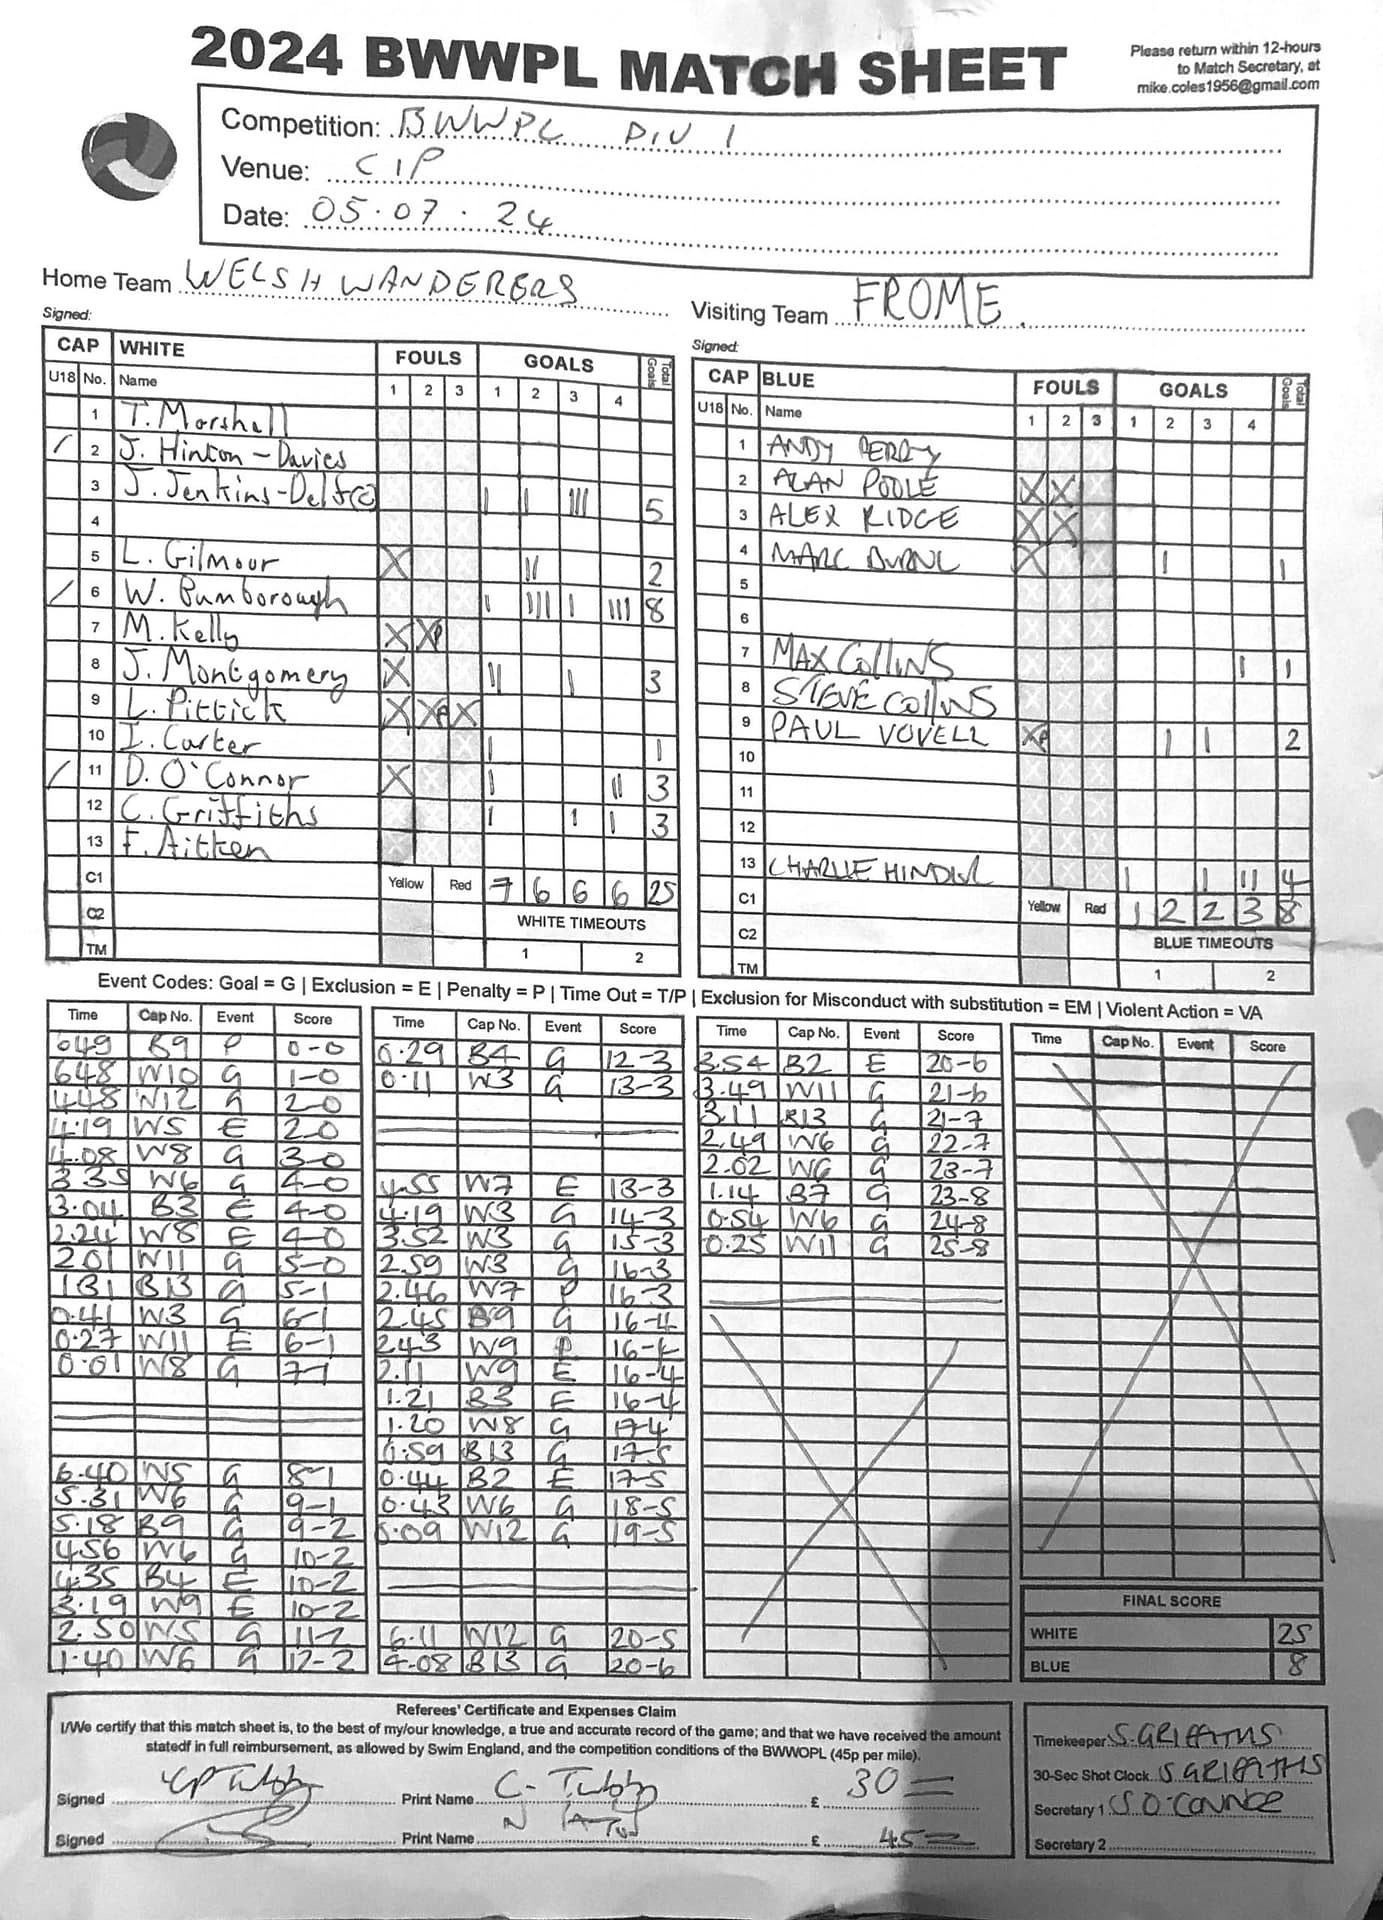 2024 BWWPL MATCH SHEET
Please return within 12-hours
to Match Secretary, at
mike.coles1956@gmail.com
Competition: BWWPL DIV 1
Venue: CIP
Date: 05.07.24
Home Team WELSH WANDERERS
Visiting Team FROME
Signed:
CAP WHITE FOULS GOALS Total Goals
U18 No. Name 1 2 3 1 2 3 4
1 T. Marshall
/ 2 J. Hinton-Davies
3 J. Jenkins-Delf(c) | | ||| 5
4
5 L. Gilmour X || 2
/ 6 W. Bumborough | |||| | ||| 8
7 M. Kelly X XP
8 J. Montgomery X || | 3
9 L. Pittick X XP X
10 I. Carter | 1
/ 11 D. O'Connor X | || 3
12 C. Griffiths | | | 3
13 F. Aitken
C1 Yellow Red 7 6 6 6 25
C2 WHITE TIMEOUTS
TM 1 2
Signed:
CAP BLUE FOULS GOALS Total Goals
U18 No. Name 1 2 3 1 2 3 4
1 ANDY PERRY
2 ALAN POOLE X X
3 ALEX RIDGE X X
4 MARC X | 1
5
6
7 MAX COLLINS | 1
8 STEVE COLLINS
9 PAUL VOVELL XP | | 2
10
11
12
13 CHARLIE | | || 4
C1 Yellow Red 1 2 2 3 8
C2 BLUE TIMEOUTS
TM 1 2
Event Codes: Goal = G | Exclusion = E | Penalty = P | Time Out = T/P | Exclusion for Misconduct with substitution = EM | Violent Action = VA
Time Cap No. Event Score
649 B9 P 0-0
648 W10 G 1-0
448 W12 G 2-0
4.19 W5 E 2-0
4.08 W8 G 3-0
3 35 W6 G 4-0
3.04 B3 E 4-0
2.24 W8 E 4-0
201 W11 G 5-0
131 B13 G 5-1
0.41 W3 G 6-1
0.27 W11 E 6-1
0.01 W8 G 7-1
6.40 W5 G 8-1
5.31 W6 G 9-1
5.18 B9 G 9-2
456 W6 G 10-2
4.35 B4 E 10-2
3.19 W9 E 10-2
2.50 W5 G 11-2
1.40 W6 G 12-2
Time Cap No. Event Score
0.29 B4 G 12-3
0.11 W3 G 13-3
4.55 W7 E 13-3
4.19 W3 G 14-3
3.52 W3 G 15-3
2.59 W3 G 16-3
2.46 W7 P 16-3
2.45 B9 G 16-4
243 W9 P 16-4
2.11 W9 E 16-4
1.21 B3 E 16-4
1.20 W8 G 17-4
0.59 B13 G 17-5
0.44 B2 E 17-5
0.43 W6 G 18-5
0.09 W12 G 19-5
6.11 W12 G 20-5
4.08 B13 G 20-6
Time Cap No. Event Score
3.54 B2 E 20-6
3.49 W11 G 21-6
3.11 B13 G 21-7
2.49 W6 G 22-7
2.02 W6 G 23-7
1.14 B7 G 23-8
0.54 W6 G 24-8
0.25 W11 G 25-8
Time Cap No. Event Score
FINAL SCORE
WHITE 25
BLUE 8
Referees' Certificate and Expenses Claim
I/We certify that this match sheet is, to the best of my/our knowledge, a true and accurate record of the game; and that we have received the amount
statedf in full reimbursement, as allowed by Swim England, and the competition conditions of the BWWOPL (45p per mile).
Signed Print Name C- Tubby £ 30 =
Signed Print Name N £ 45 =
Timekeeper S. GRIFFITHS
30-Sec Shot Clock S GRIFFITHS
Secretary 1 S. O'CONNOR
Secretary 2